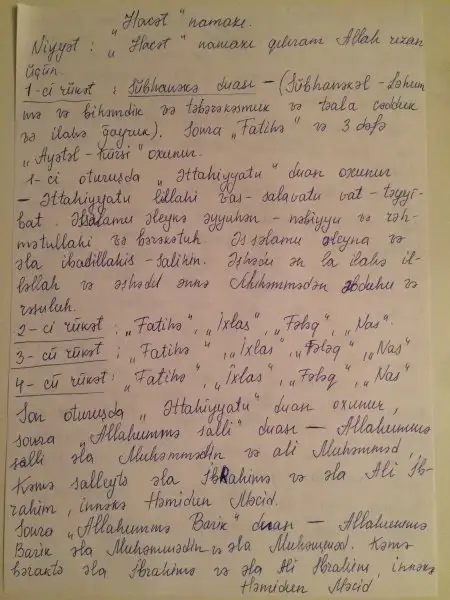 "Hacət" namazı.
Niyyət : "Hacət" namazı qılıram Allah rızası
üçün.
1-ci rükət : Sübhanəkə duası – (Sübhanəkəl-Ləhum
mə və bihəmdik və təbərakəsmuk və təala cədduk
və ilahə ğayruk). Sonra "Fatihə" və 3 dəfə
"Ayətəl-kürsi" oxunur.
1-ci oturuşda "Əttəhiyyatu" duası oxunur
– Əttəhiyyatu lillahi vas-salavatu vat-təyyi-
bat. Əssəlamu əleykə əyyuhən-nəbiyyu və rəh-
mətullahi və bərəkətuh. Əs səlamu əleyna və
əla ibadillahis-salihin. Əşhədu ən la ilahə il-
ləllah və əşhədu ənnə Muhəmmədən əbduhu və
rəsuluh.
2-ci rükət : "Fatihə", "İxlas", "Fələq", "Nas".
3-cü rükət ; "Fatihə", "İxlas", "Fələq", "Nas"
4-cü rükət : "Fatihə", "İxlas", "Fələq", "Nas"
Son oturuşda "Əttəhiyyatu" duası oxunur,
sonra "Allahummə salli" duası – Allahummə
salli əla Muhəmmədin və ali Muhəmməd,
Kəmə salleytə əla İbRahimə və əla Ali İb-
rahim, innəkə Həmidun Məcid.
Sonra "Allahummə Barik" duası – Allahummə
Barik əla Muhəmmədin və əla Muhəmməd. Kəmə
bəraktə əla İbrahimə və əla Ali İbrahim, innəkə
Həmidun Məcid